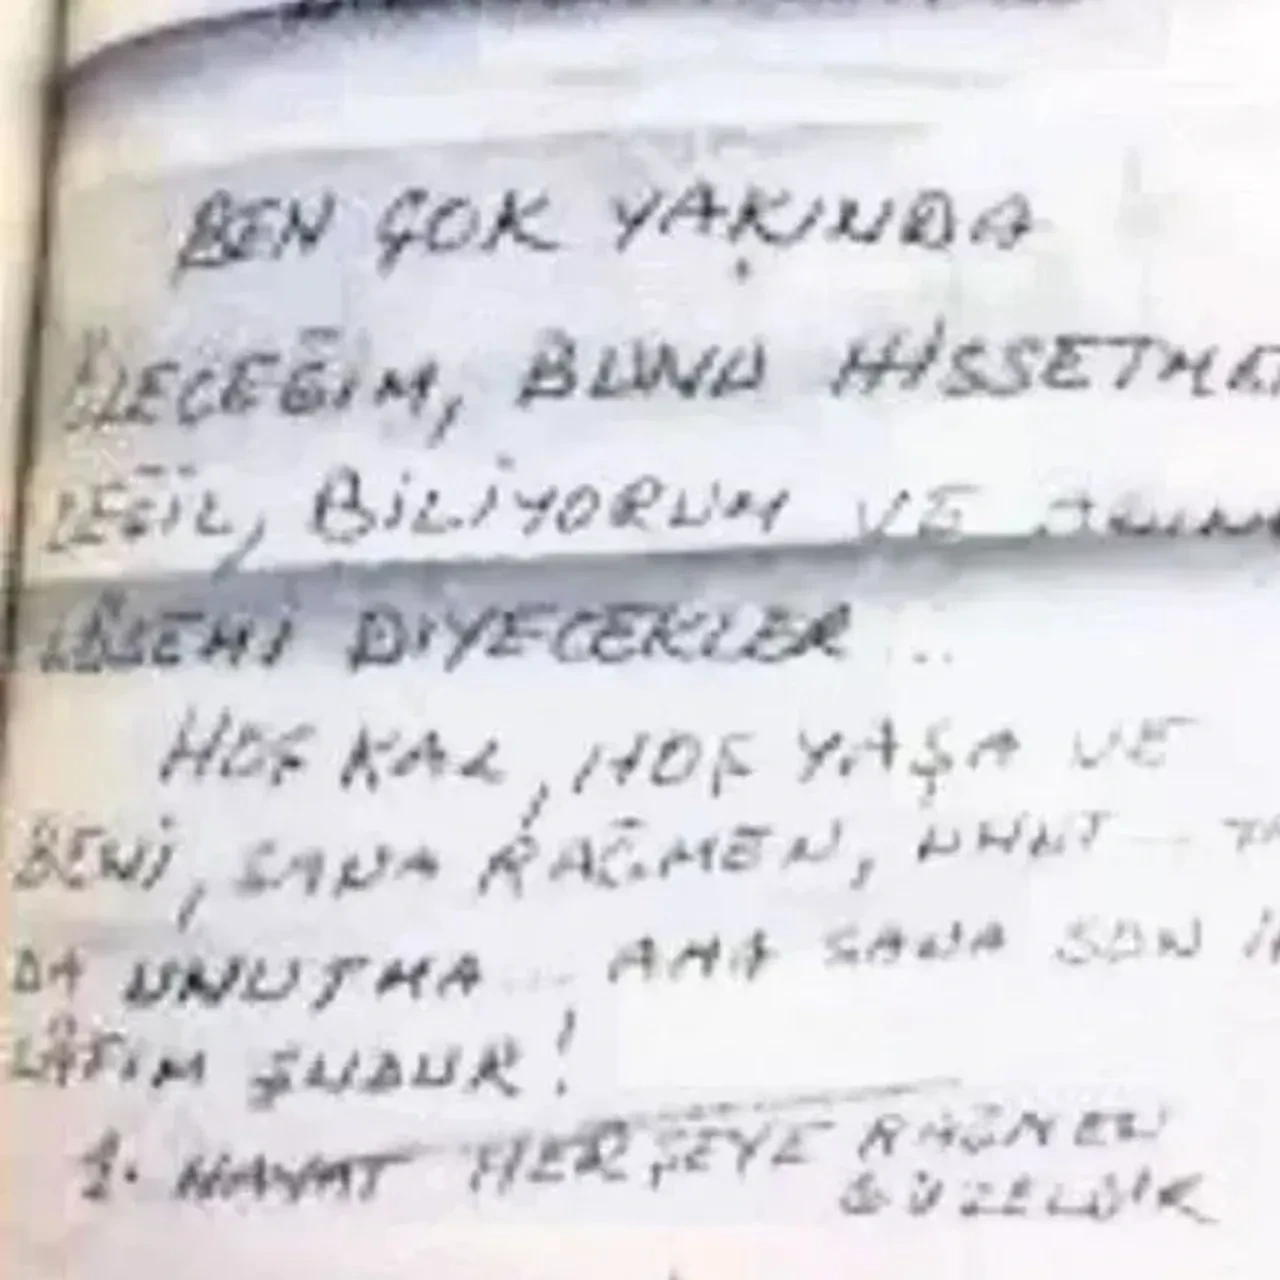 BEN ÇOK YAKINDA
ÖLECEĞİM, BUNU HİSSETME
DEĞİL, BİLİYORUM VE
LÖSEMİ DİYECEKLER ...
HOŞ KAL, HOŞ YAŞA VE
BENİ, SANA RAĞMEN, UNUT ...
DA UNUTMA ... AMA SANA SON
LÂFIM ŞUDUR!
1. HAYAT HERŞEYE RAĞMEN
GÜZELDİR